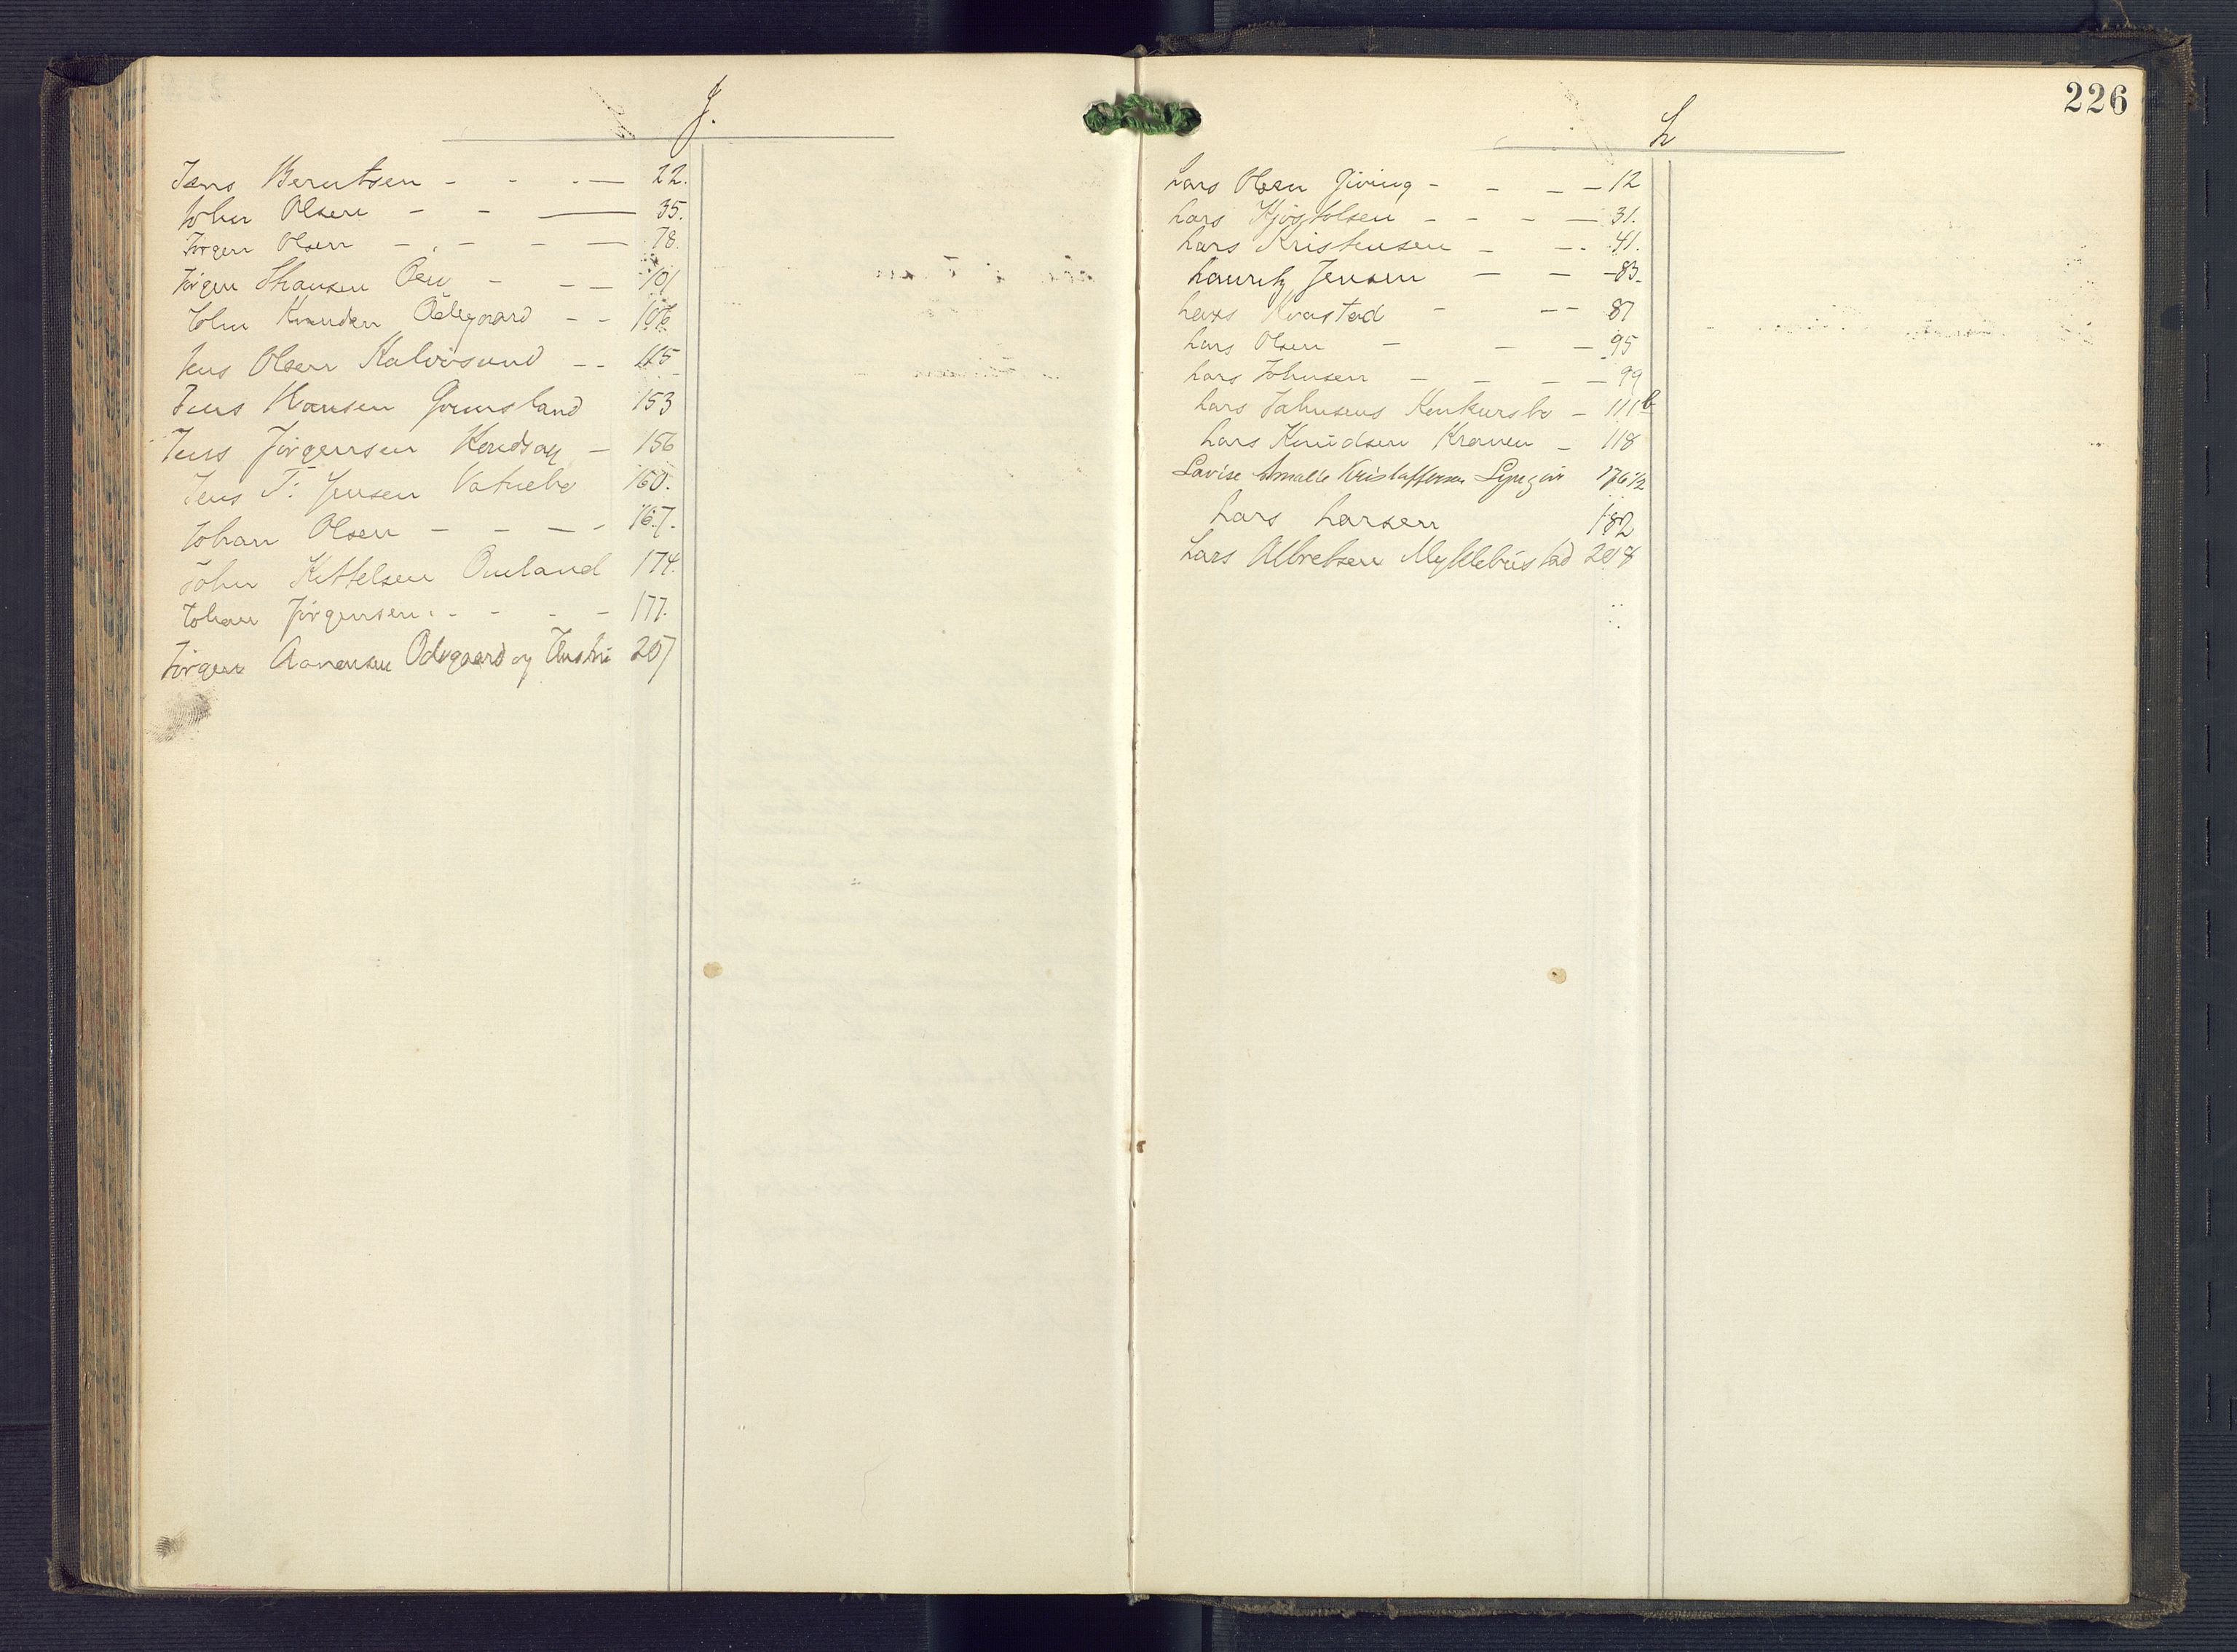 J.
Jens Berntsen - - - — 22.
John Olsen - - — 35.
Jörgen Olsen - - - — 78.
Jörgen Hansen Oen - - — 101
John Knudsen Ödegaard - - 106.
Jens Olsen Kalvösund - - 115
Jens Hansen Goumsland 153
Jens Jörgensen - 156
Jens T. Jensen Vatnebo 160.
Johan Olsen - - — - 167.
John Kittelsen Omland 174.
Johan Jörgensen. - - - - 177.
Jörgen Aanensen Odegaard og Hustru 207
226
L
Lars Olsen Giving - - - - 12
Lars Kjöstolsen - - - — 31.
Lars Kristensen - - - 41.
Lauritz Jensen - - - 83.
Lars Kvastad - - - 87
Lars Olsen - - - 95
Lars Johnsen - - - - 99
Lars Johnsens Konkursbo - 111b
Lars Knudsen Kranen - 118
Lovise Amalie Kristoffersen Lyngör 176 1/2
Lars Larsen 182
Lars Albretsen Myklebustad 208